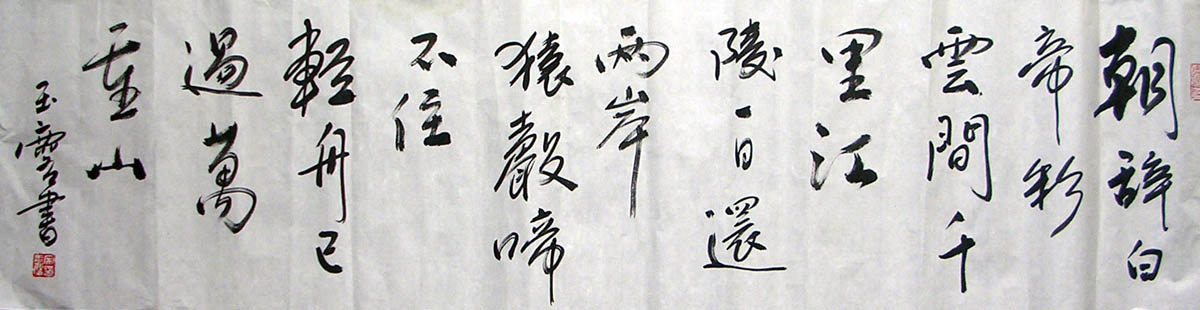 朝辞白
帝彩
雲間千
里江
陵一日還
兩岸
猿聲啼
不住
輕舟已
過萬
重山
玉霞書